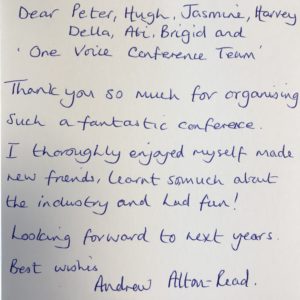 Dear Peter, Hugh, Jasmine, Harvey
Della, Abi, Brigid and
'One Voice Conference Team'
Thank you so much for organising
such a fantastic conference.
I thoroughly enjoyed myself made
new friends, learnt somuch about
the industry and had fun!
Looking forward to next years.
Best wishes
Andrew Alton-Read.